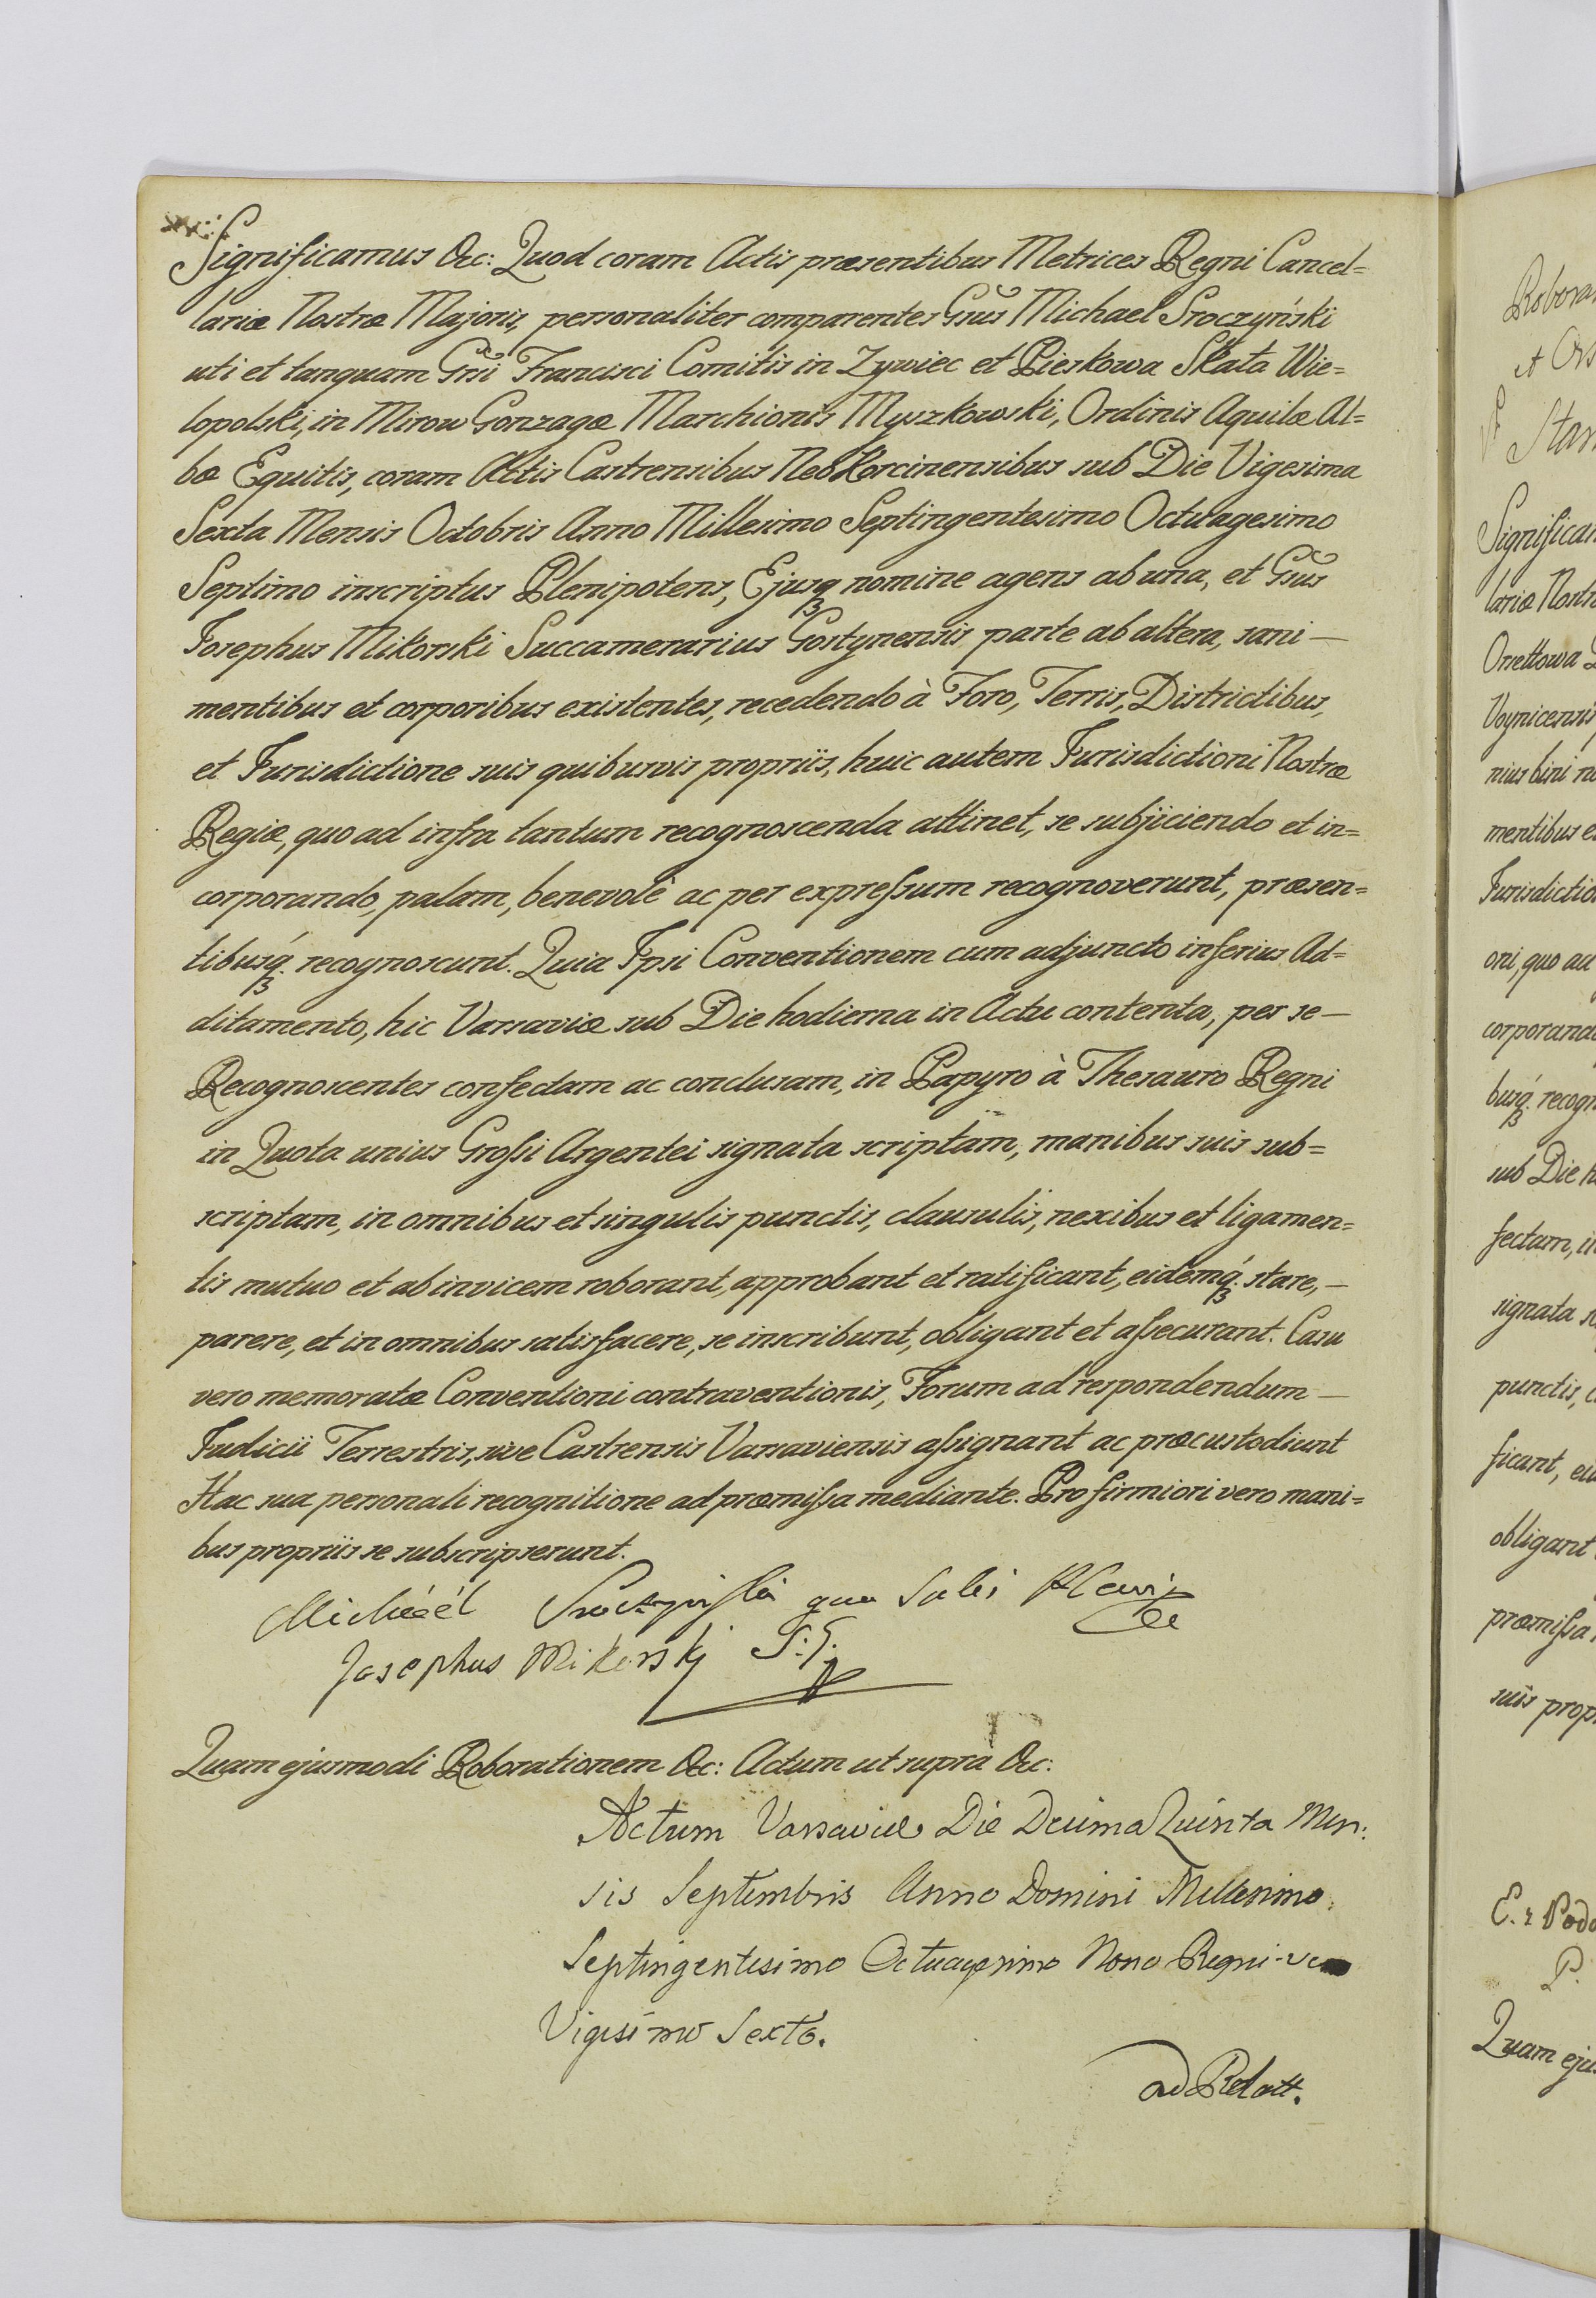 Significamus &c: Quod coram Actis præsentibus Metrices Regni Cancel=
lariæ Nostræ Majoris, personaliter comparentes Gsus Michael Sroczyński
uti et tanquam Gsi Francisci Comitis in Zywiec et Pieskowa Skała Wie=
lopolski, in Mirow Gonzagæ Marchionis Myszkowski, Ordinis Aquilæ Al=
bæ Equitis, coram Actis Castrensibus Neo Korcinensibus sub Die Vigesima
Sexta Mensis Octobris Anno Millesimo Septingentesimo Octuagesimo
Septimo inscriptus Plenipotens, Ejusq nomine agens ab una, et Gsus
Josephus Mikorski Succamerarius Gostynensis parte ab altera, sani —
mentibus et corporibus existentes, recedendo à Foro, Terris, Districtibus,
et Jurisdictione suis quibusvis propriis, huic autem Jurisdictioni Nostræ
Regiæ, quo ad infra tantum recognoscenda attinet, se subjiciendo et in=
corporando, palam, benevolè ac per expreſsum recognoverunt, præsen=
tibusq́. recognoscunt. Quia Ipsi Conventionem cum adjuncto inferius Ad=
ditamento, hic Varsaviæ sub Die hodierna in Actu contenta, per se —
Recognoscentes confectam ac conclusam, in Papyro à Thesauro Regni
in Quota unius Groſsi Argentei signata scriptam, manibus suis sub=
scriptam, in omnibus et singulis punctis, clausulis, nexibus et ligamen=
tis mutuo et ab invicem roborant, approbant et ratificant, eidemq́. stare, —
parere, et in omnibus satisfacere, se inscribunt, obligant et aſsecurant. Casu
vero memoratæ Conventioni contraventionis, Forum ad respondendum —
Judicii Terrestris, sive Castrensis Varsaviensis aſsignant ac præcustodiunt
Hac sua personali recognitione ad præmiſsa mediante. Pro firmiori vero mani=
bus propriis se subscripserunt.
Michaél Sroczyński
Josephus Mikorski S: G:
Quam ejusmodi Roborationem &c: Actum ut supra &c:
Actum Varsaviæ Die Decima Quinta Men:
sis Septembris Anno Domini Millesimo
Septingentesimo Octuagesimo Nono Regni
Vigesimo Sexto.
ad Relatt.